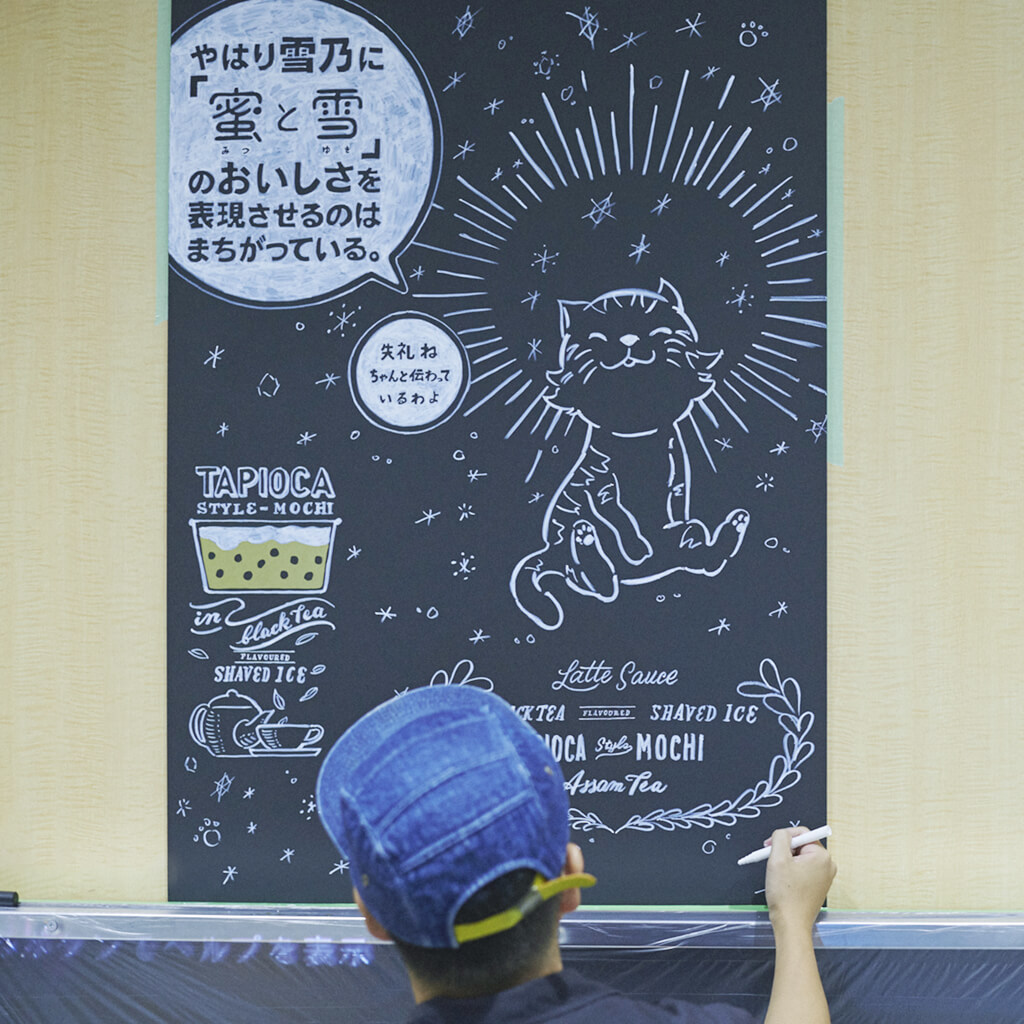 やはり雪乃に
「蜜と雪」
みつ ゆき
のおいしさを
表現させるのは
まちがっている。
失礼ね
ちゃんと伝わって
いるわよ
TAPIOCA
STYLE-MOCHI
in
black Tea
FLAVOURED
SHAVED ICE
Latte Sauce
CK TEA FLAVOURED SHAVED ICE
IOCA Style MOCHI
Assam Tea